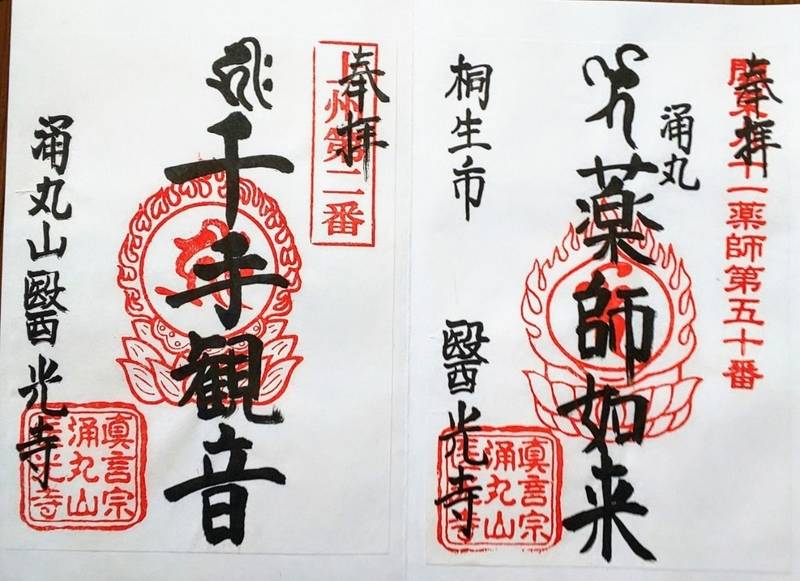 奉拝
関東九十一薬師第五十番
涌丸
薬師如来
桐生市
醫光寺
眞言宗
涌丸山
醫光寺
奉拝
上州第二番
千手観音
涌丸山醫光寺
眞言宗
涌丸山
醫光寺